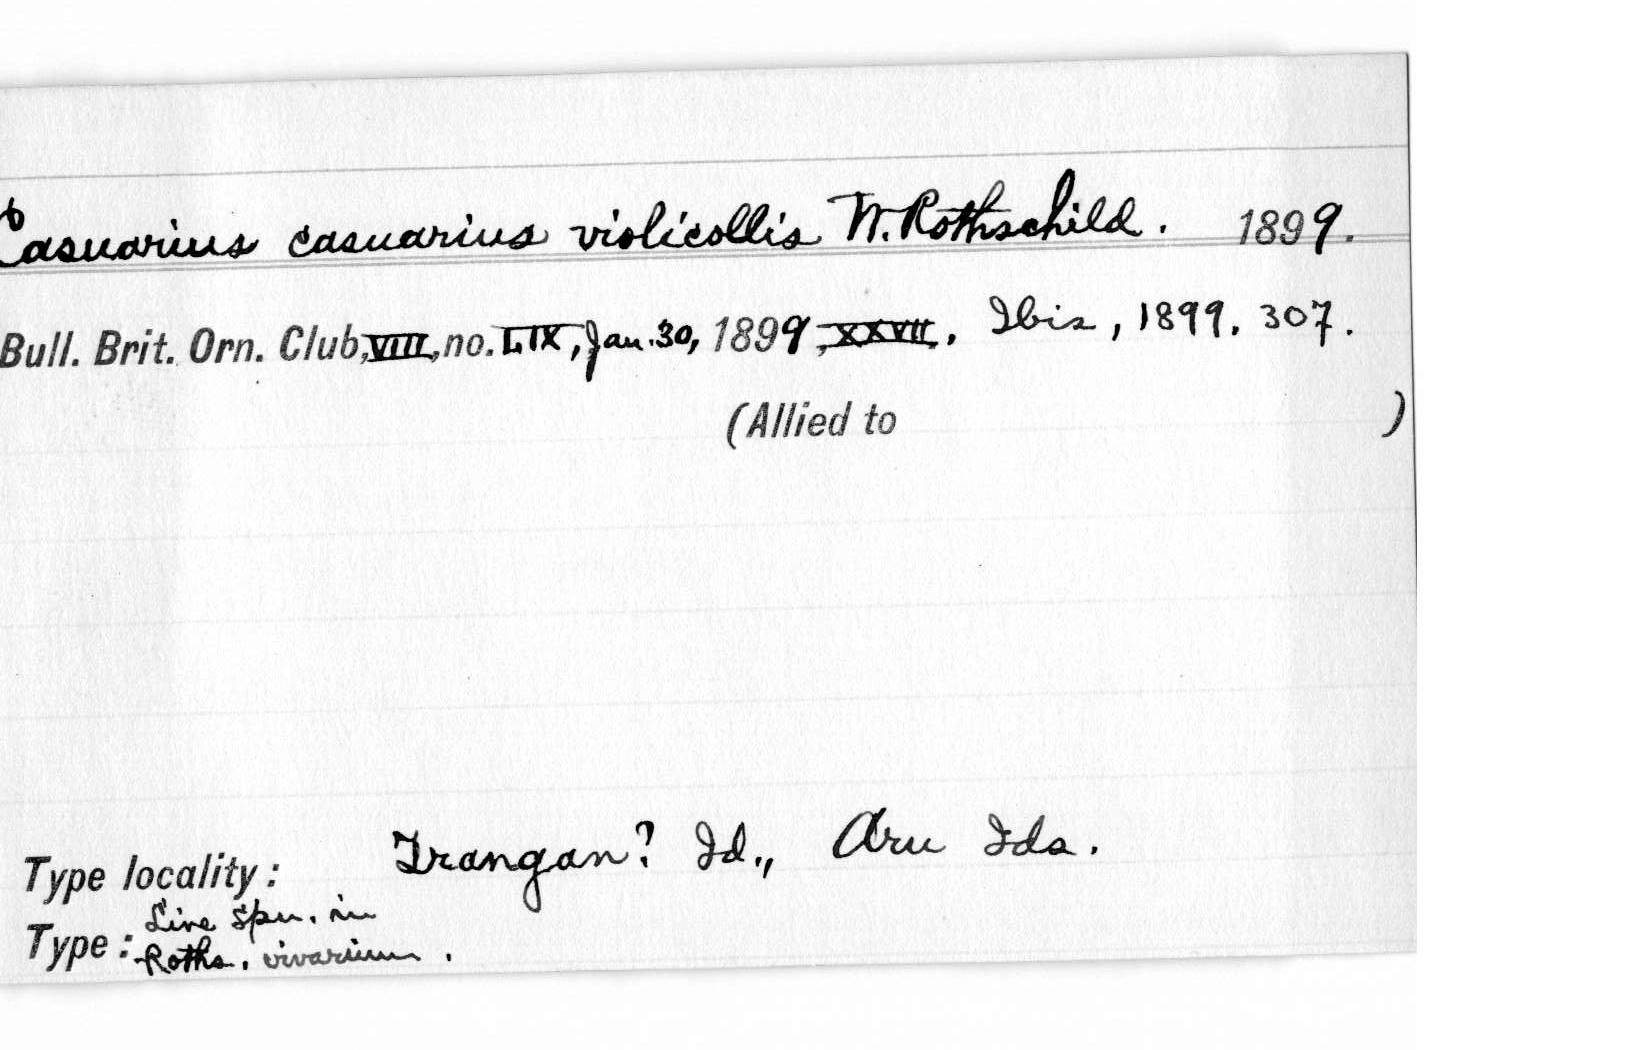 Casuarius casuarius violicollis W. Rothschild. 1899.
Bull. Brit. Orn. Club, VIII, no. LIX, Jan. 30, 1899, XXVII. Ibis, 1899. 307.
(Allied to )
Type locality: Trangan? Id., Aru Ids.
Type: Live spn. in
Roths. vivarium.